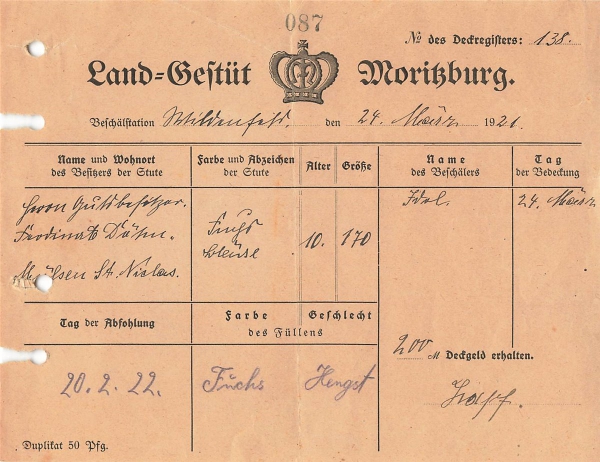 087
No des Deckregisters: 138.
Land-Gestüt Moritzburg.
Beschälstation Wildenfels. den 24. März 1921.
Name und Wohnort des Besitzers der Stute
Farbe und Abzeichen der Stute
Alter
Größe
Name des Beschälers
Tag der Bedeckung
Herrn Gutsbesitzer
Ferdinat
Mülsen St. Niclas.
Fuchs
10.
170
Idol.
24. März
Tag der Abfohlung
Farbe Geschlecht
des Füllens
20.2.22.
Fuchs
Hengst
200 M Deckgeld erhalten.
Duplikat 50 Pfg.